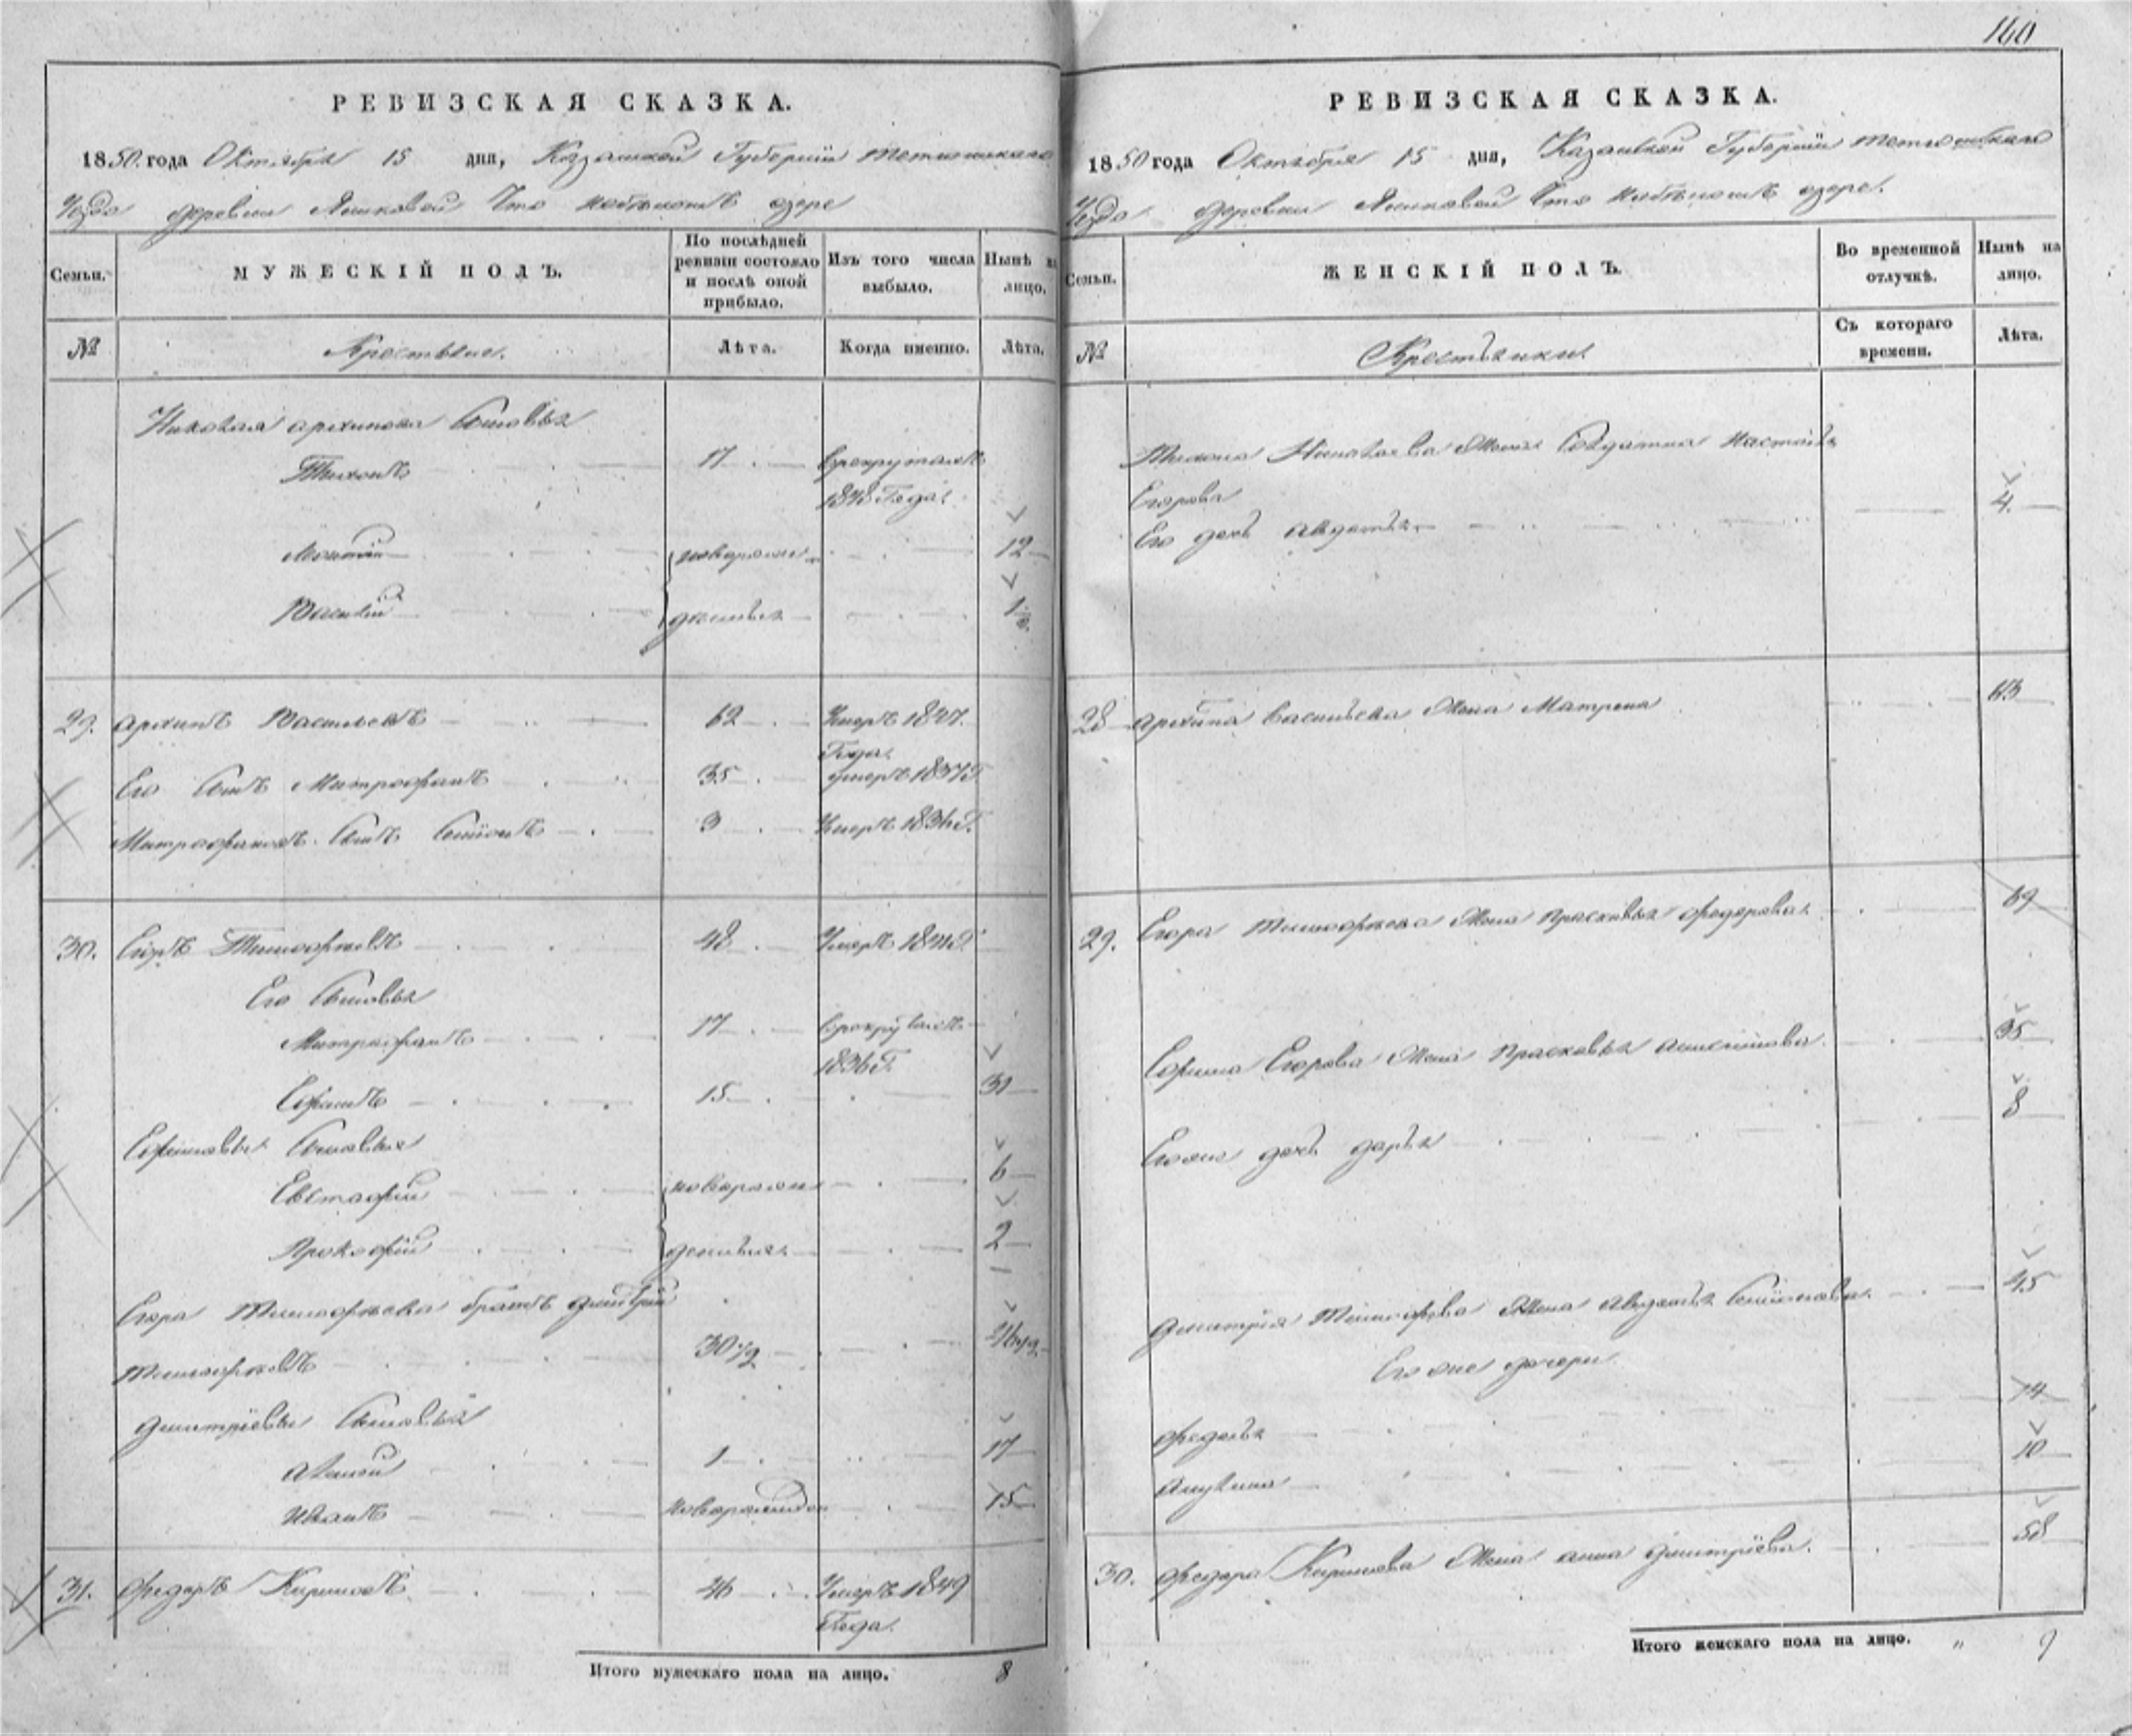 160
РЕВИЗСКАЯ СКАЗКА.
1850 года Октября 15 дня, Казанской Губернии Тетюшскаго
Уезда деревни Янковой Что на озере
Семьи.
МУЖЕСКІЙ ПОЛЪ.
По послѣдней ревизіи состояло и послѣ оной прибыло.
Изъ того числа выбыло.
Нынѣ на лицо.
№
Крестьяне.
Лѣта.
Когда именно.
Лѣта.
Николая Архипова Сыновья
Тихонъ 17 врекруталъ
1848 Года.
новорож 12
Василій денныя 1
29. Архипъ Васильевъ 62 Умеръ 1847.
Года.
Его Сынъ Митрофанъ 35 умеръ 1837 Г.
Митрофановъ Сынъ Семіонъ 3 Умеръ 1836 Г.
30. Егоръ Тимофеевъ 48 Умеръ 1841 Г
Его Сыновья
Митрофанъ 17 врекруталъ
1836 Г.
Ефимъ 15 31
Ефимовы Сыновья
Евстафій новорожд 6
Прокофій денныя 2
Егора Тимофеева братъ Дмитрій
Тимофеевъ 30 1/2 46 1/2
Дмитріевы Сыновья
Алексій 1 17
Иванъ новорожден 15
31. Федоръ Кириловъ 46 Умеръ 1849
Года.
Итого мужескаго пола на лицо. 8
РЕВИЗСКАЯ СКАЗКА.
1850 года Октября 15 дня, Казанской Губерніи Тетюшскаго
Уезда деревни Янковой Что на озере.
Семьи.
ЖЕНСКІЙ ПОЛЪ.
Во временной отлучкѣ.
Нынѣ на лицо.
№
Крестьянки.
Съ котораго времени.
Лѣта.
Тихона Николаева Жена Солдатка Настасья
Егорова
Его дочь Авдотья 4
28 Архипа Васильева Жена Матрена 63
29. Егора Тимофеева Жена Прасковья Федорова 69
Ефима Егорова Жена Прасковья 35
Егоже дочь Дарья 8
Дмитрія Тимофеева Жена Авдотья Семіонова 45
Его же дочери
Федосья 14
Акулина 10
30. Федора Кирилова Жена Анна Дмитріева. 58
Итого женскаго пола на лицо. " 9